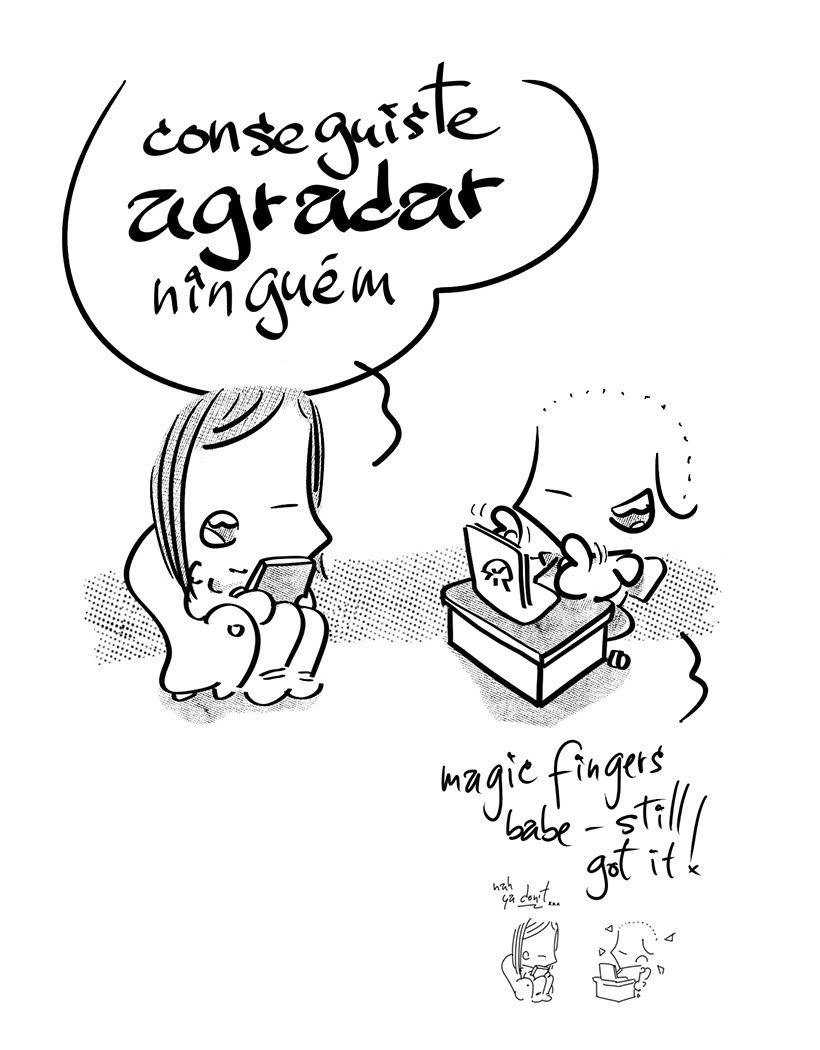 conseguiste
agradar
ninguém
magic fingers
babe – still
got it!
nah
ya don't...